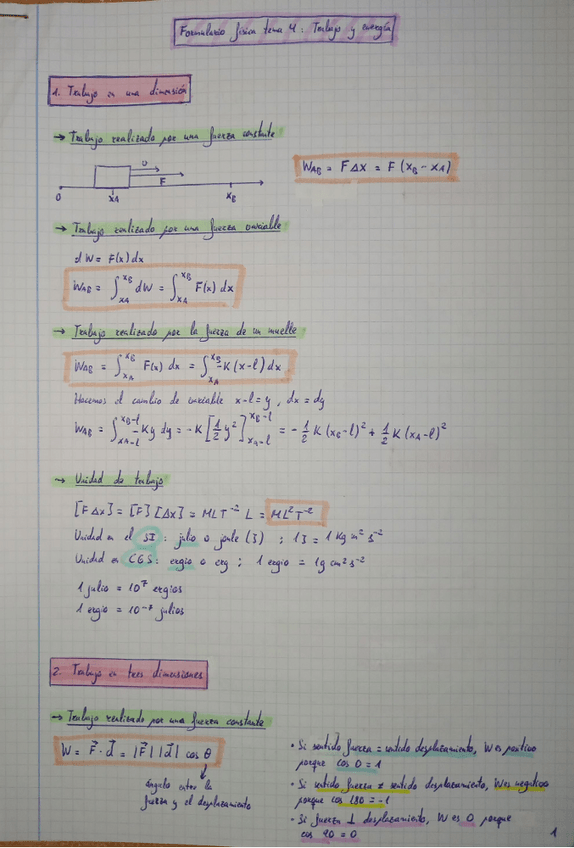 Formulario física tema 4: Trabajo y energía
1. Trabajo en una dimensión
→ Trabajo realizado por una fuerza constante
v
F
0 xA xB
WAB = F Δx = F (xB - xA)
→ Trabajo realizado por una fuerza variable
dW = F(x) dx
WAB = ∫xA^xB dW = ∫xA^xB F(x) dx
→ Trabajo realizado por la fuerza de un muelle
WAB = ∫xA^xB F(x) dx = ∫xA^xB -K (x-l) dx
Hacemos el cambio de variable x-l=y, dx = dy
WAB = ∫xA-l^xB-l -Ky dy = -K [1/2 y²]xA-l^xB-l = -1/2 K (xB-l)² + 1/2 K (xA-l)²
→ Unidad de trabajo
[F Δx] = [F] [Δx] = MLT⁻² L = ML²T⁻²
Unidad en el SI: julio o joule (J) ; 1J = 1 Kg m² s⁻²
Unidad en CGS: ergio o erg ; 1 ergio = 1g cm² s⁻²
1 julio = 10⁷ ergios
1 ergio = 10⁻⁷ julios
2. Trabajo en tres dimensiones
→ Trabajo realizado por una fuerza constante
W = F⃗ · d⃗ = |F⃗| |d⃗| cos θ
ángulo entre la
fuerza y el desplazamiento
• Si sentido fuerza = sentido desplazamiento, W es positivo
porque cos 0 = 1
• Si sentido fuerza ≠ sentido desplazamiento, W es negativo
porque cos 180 = -1
• Si fuerza ⊥ desplazamiento, W es 0 porque
cos 90 = 0
1